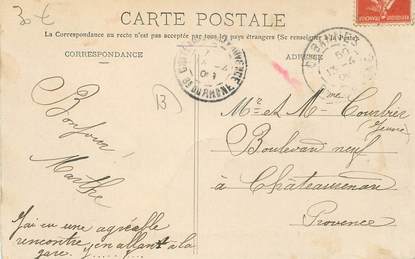 30 €
CARTE POSTALE
La Correspondance au recto n'est pas acceptée par tous les pays étrangers (Se renseigner à la Poste)
CORRESPONDANCE
ADRESSE
13
Bonjour!
Marthe
J'ai eu une agréable
rencontre, en allant à la
gare.
Mr et Mme Courbier
Boulevard neuf
à Châteaurenard
Provence